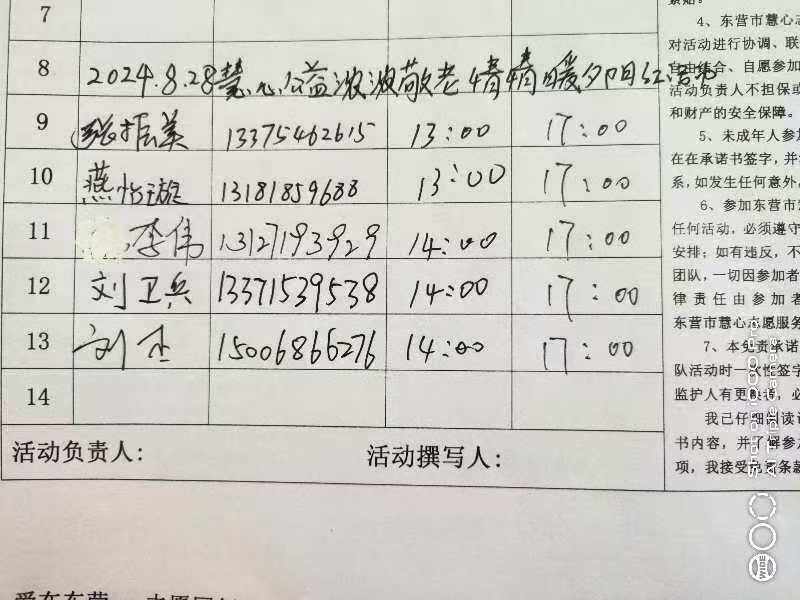 7
8 2024.8.28慧心公益浓浓敬老情情暖夕阳红活动
9 张振美 13375462615 13:00 17:00
10 燕怡璇 13181859688 13:00 17:00
11 李伟 13127193929 14:00 17:00
12 刘卫兵 13371539538 14:00 17:00
13 刘杰 15006866276 14:00 17:00
14
活动负责人: 活动撰写人:
4、东营市慧心志
对活动进行协调、联
自由结合、自愿参加
活动负责人不担保或
和财产的安全保障。
5、未成年人参加
在在承诺书签字,并
系,如发生任何意外,
6、参加东营市
任何活动,必须遵守
安排;如有违反,不
团队,一切因参加者
律责任由参加者
东营市慧心志愿服务
7、本免责承诺
队活动时一次性签字
监护人有更换,必
我已仔细阅读
书内容,并了解参加
项,我接受免责条款
爱在东营
WIDE